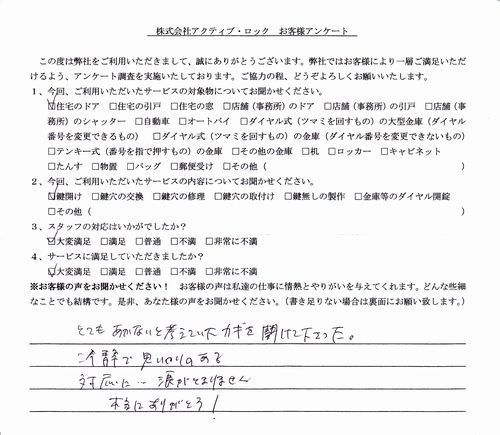 株式会社アクティブ・ロック　お客様アンケート
この度は弊社をご利用いただきまして、誠にありがとうございます。弊社ではお客様により一層ご満足いただ
けるよう、アンケート調査を実施いたしております。ご協力の程、どうぞよろしくお願いいたします。
1、今回、ご利用いただいたサービスの対象物についてお聞かせください。
☑住宅のドア　□住宅の引戸　□住宅の窓　□店舗（事務所）のドア　□店舗（事務所）の引戸　□店舗（事
務所）のシャッター　□自動車　□オートバイ　□ダイヤル式（ツマミを回すもの）の大型金庫（ダイヤル
番号を変更できるもの）　□ダイヤル式（ツマミを回すもの）の金庫（ダイヤル番号を変更できないもの）
□テンキー式（番号を指で押すもの）の金庫　□その他の金庫　□机　□ロッカー　□キャビネット
□たんす　□物置　□バッグ　□郵便受け　□その他（　）
2、今回、ご利用いただいたサービスの内容についてお聞かせください。
☑鍵開け　□鍵穴の交換　□鍵穴の修理　□鍵穴の取付け　□鍵無しの製作　□金庫等のダイヤル開錠
□その他（　）
3、スタッフの対応はいかがでしたか？
☑大変満足　□満足　□普通　□不満　□非常に不満
4、サービスに満足していただきましたか？
☑大変満足　□満足　□普通　□不満　□非常に不満
※お客様の声をお聞かせください！　お客様の声は私達の仕事に情熱とやりがいを与えてくれます。どんな些細
なことでも結構です。是非、あなた様の声をお聞かせください。（書き足りない場合は裏面にお願い致します。）
とても あかないと考えていたカギを 開けて下さった。
冷静で 思いやりのある
対応に… 涙がとまりません
本当にありがとう！